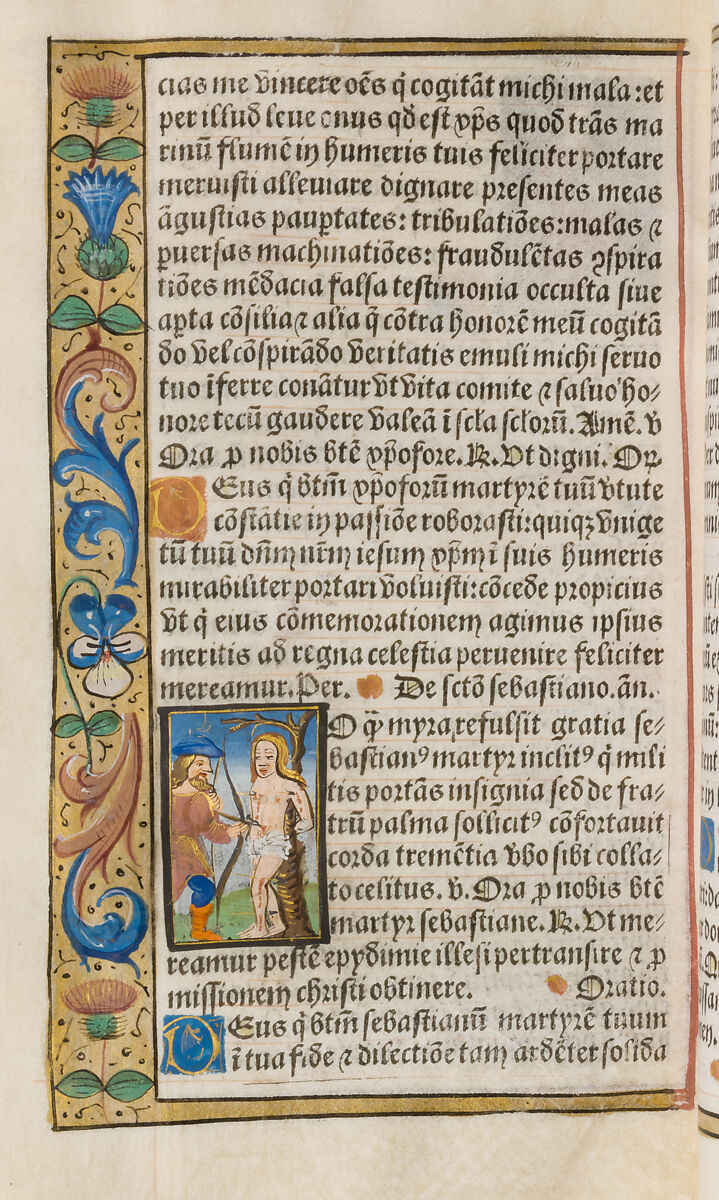 cias me vincere oēs q̄ cogitāt michi mala: et
per illud leue onus qd̄ est xp̄s quod trās ma
rinū flumē in humeris tuis feliciter portare
meruisti alleuiare dignare presentes meas
āgustias paup̄tates: tribulatiōes: malas ⁊
ꝑuersas machinatiōes: fraudulētas ꝯspira
tiōes mēdacia falsa testimonia occulta siue
apta cōsilia ⁊ alia q̄ cōtra honorē meū cogitā
do vel cōspirādo veritatis emuli michi seruo
tuo īferre conātur vt vita comite ⁊ saluo ho-
nore tecū gaudere valeā ī scl̄a scl̄orū. Amē. v̄
Ora ꝓ nobis btē xp̄ofore. ℟. Vt digni. Or̄.
Deus q̄ btm̄ xp̄oforū martyrē tuū v̄tute
cōstātie in passiōe roborasti: quiqꝫ vnige
tū tuū dn̄m nr̄m iesum xp̄m ī suis humeris
mirabiliter portari voluisti: cōcede propicius
vt q̄ eius cōmemorationem agimus ipsius
meritis ad regna celestia peruenire feliciter
mereamur. Per. De sctō sebastiano. an̄.
O q̄ myra refulsit gratia se-
bastianꝰ martyr inclitꝰ q̄ mili
tis portās insignia sed de fra-
trū palma sollicitꝰ cōfortauit
corda tremētia v̄bo sibi colla-
to celitus. v̄. Ora ꝓ nobis btē
martyr sebastiane. ℟. Vt me-
reamur pestē epydimie illesi pertransire ⁊ ꝓ
missionem christi obtinere. Oratio.
Deus q̄ btm̄ sebastianū martyrē tuum
ī tua fide ⁊ dilectiōe tam ardēter solida